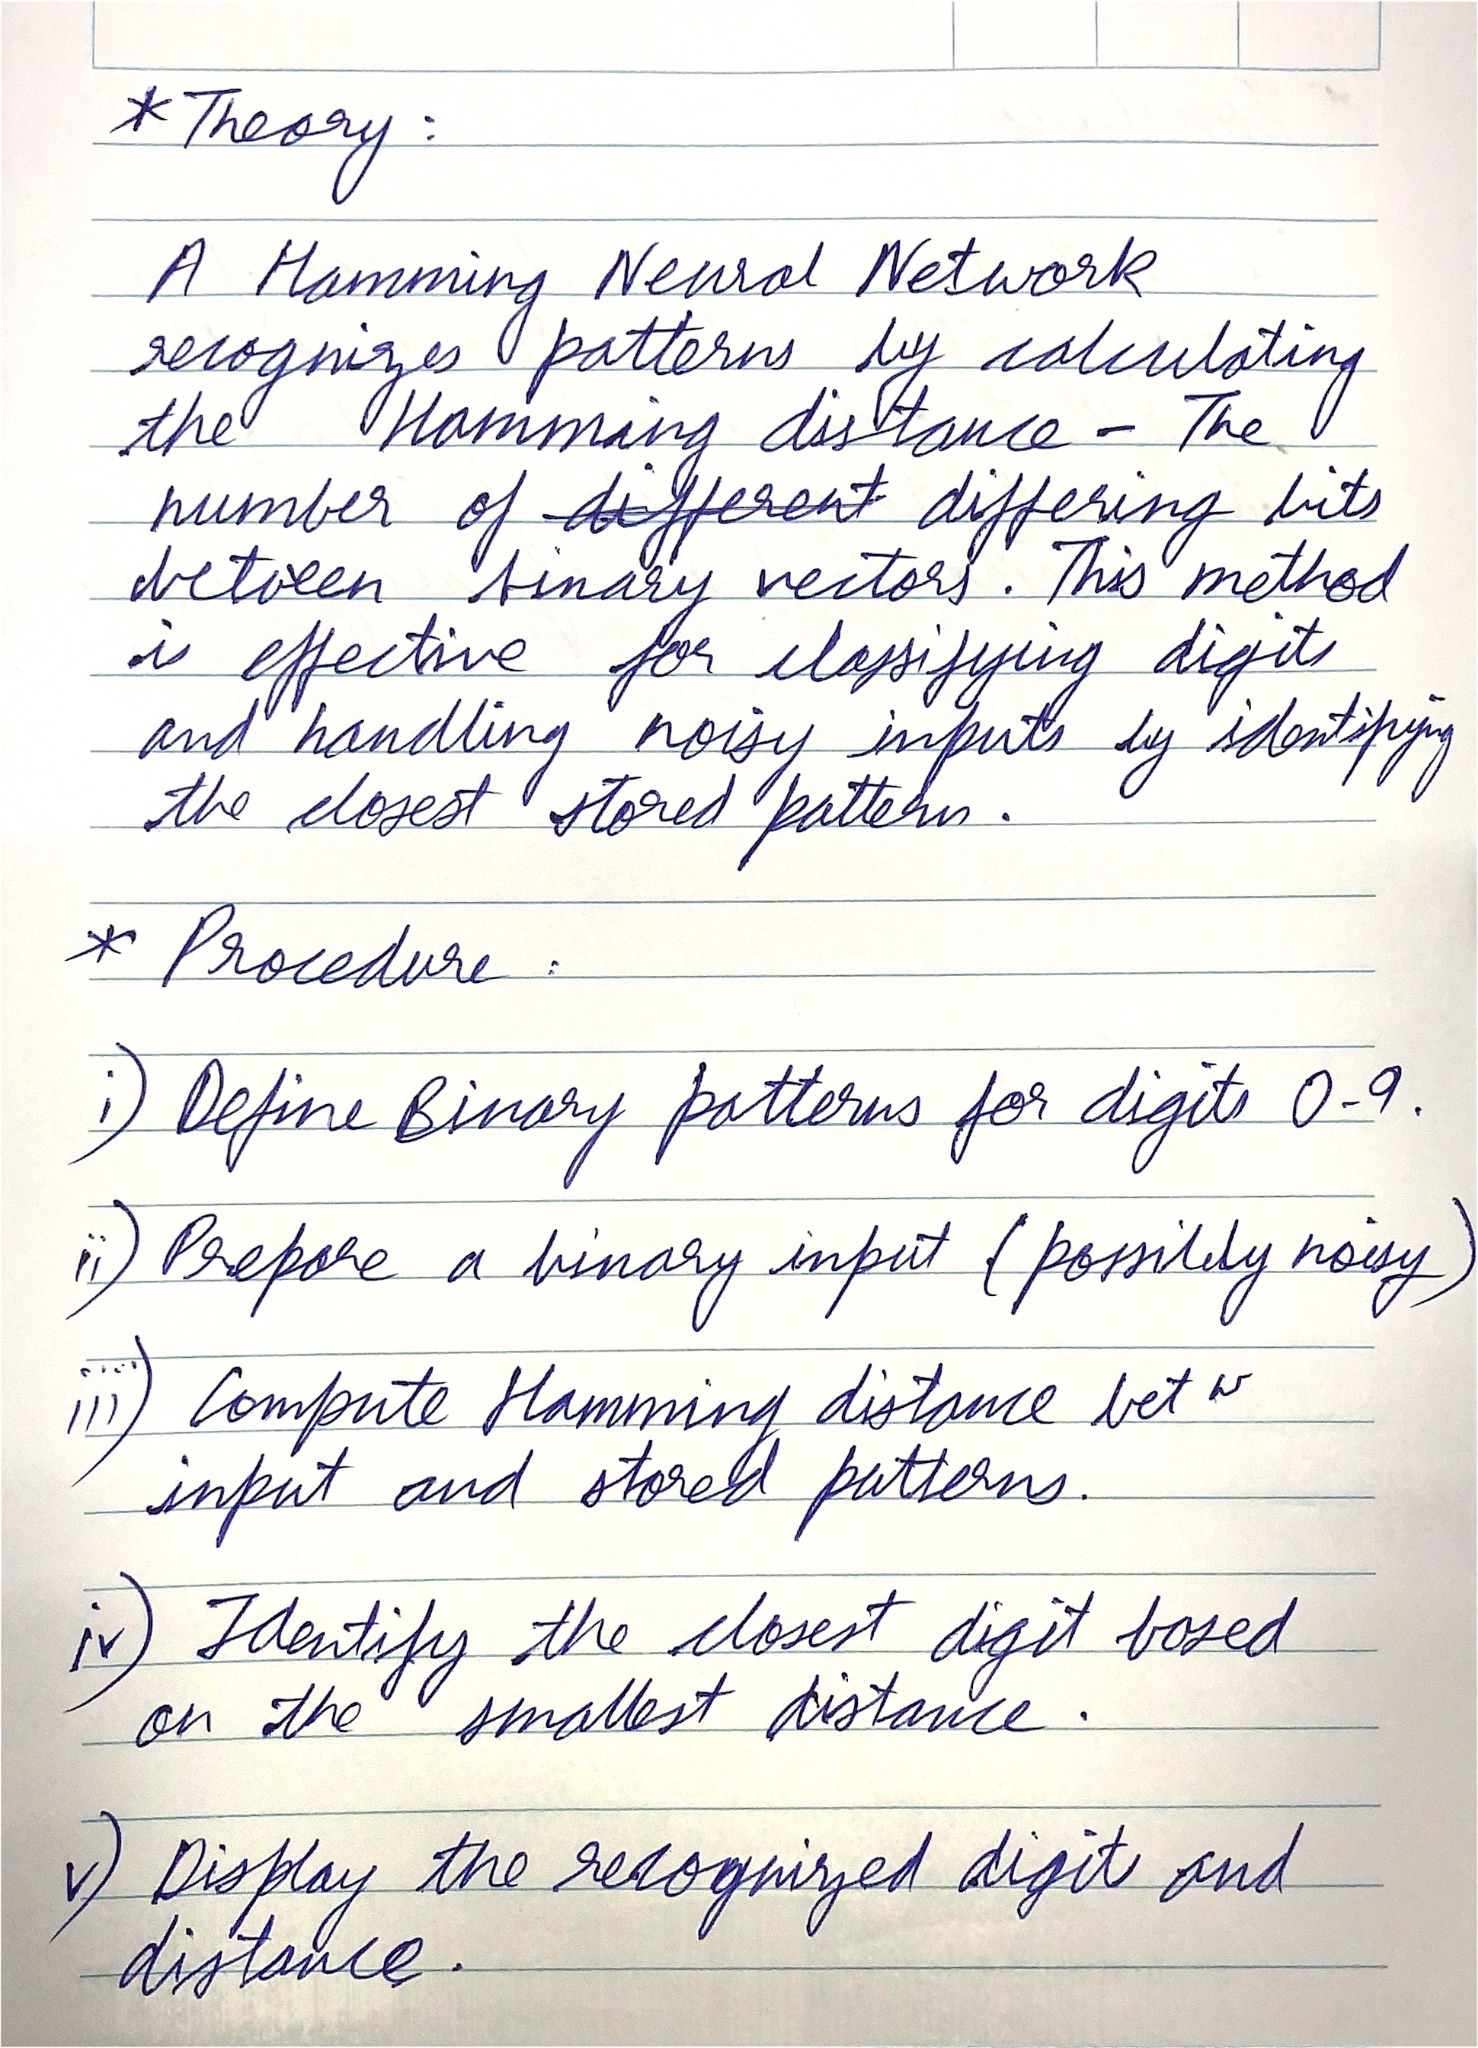 * Theory :
A Hamming Neural Network
recognizes patterns by calculating
the Hamming distance - The
number of ~~different~~ differing bits
between binary vectors. This method
is effective for classifying digits
and handling noisy inputs by identifying
the closest stored pattern.
* Procedure :
i) Define Binary patterns for digits 0-9.
ii) Prepare a binary input (possibly noisy)
iii) Compute Hamming distance betw
input and stored patterns.
iv) Identify the closest digit based
on the smallest distance.
v) Display the recognized digit and
distance.